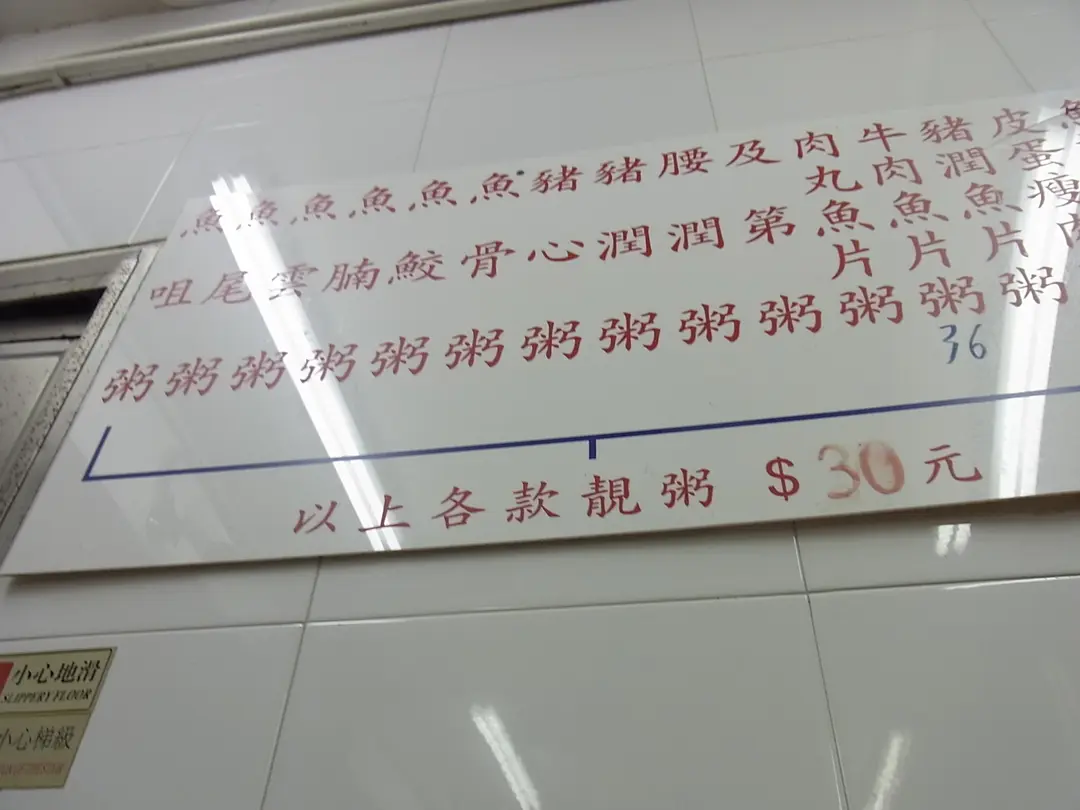 魚咀粥
魚尾粥
魚雲粥
魚腩粥
魚鮫粥
魚骨粥
豬心粥
豬潤粥
腰潤粥
及第粥
肉丸魚片粥
牛肉魚片粥
36
豬潤魚片粥
皮蛋瘦
以上各款靚粥 $30元
小心地滑
SLIPPERY FLOOR
小心梯級